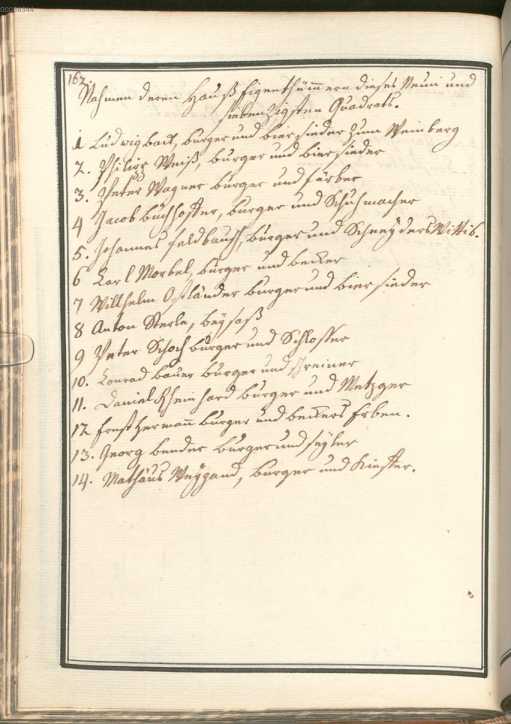 162.
Nahmen deren Hauß Eigenthümern dieses Neun und
siebenZigsten Quadrats.
1 Ludwig back, burger und biersieder Zum Weinberg
2. Philipp Weiß, burger und biersieder
3. Peter Wagner burger und färber
4 Jacob buchhoffer, burger und Schuhmacher
5. Johannes Feldbausch, burger und Schneyders Wittib.
6 Carl Morbel, burger und becker
7 Willhelm Ostländer burger und bier sieder
8 Anton Sterle, beysaß
9 Peter Schoch burger und Schlosser
10. Conrad bauer burger und Schreiner
11. Daniel Rheinhard burger und Metzger
12. Ernst Hermann burger und beckers Erben.
13. Georg bender burger und seyler
14. Mathäus Weygand, burger und Kieffer.